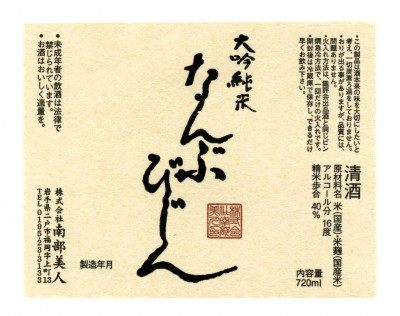 ・この製品は酒本来の味を大切にしたいと
考え、一切炭素ろ過をしておりません。
おりが出る事がありますが、品質には、
問題ありません。
・火入れ方法は、鑑評会出品酒と同じビン
燗急冷方法で、一回だけの火入れです。
・開封後は冷蔵庫で保存し、できるだけ
早くお飲み下さい。
清酒
原材料名 米(国産)・米麹(国産米)
アルコール分 16度
精米歩合 40%
内容量
720ml
大吟純米
なんぶ
びじん
製造年月
・未成年者の飲酒は法律で
禁じられています。
・お酒はおいしく適量を。
株式会社 南部美人
岩手県二戸市福岡字上町13
TEL 0195-23-3133